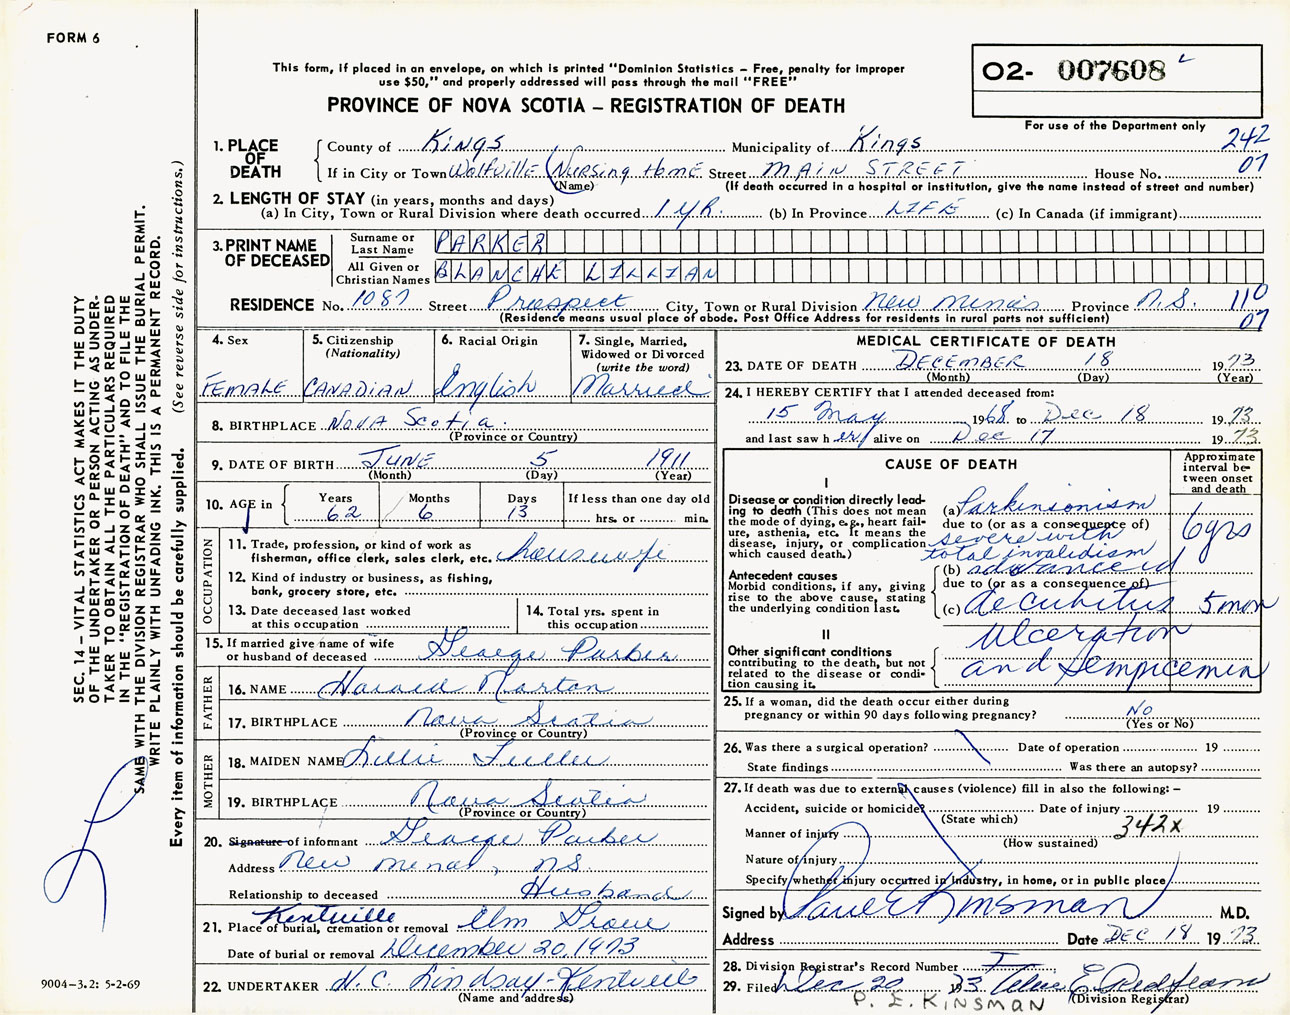 FORM 6
This form, if placed in an envelope, on which is printed "Dominion Statistics – Free, penalty for improper
use $50," and properly addressed will pass through the mail "FREE"
PROVINCE OF NOVA SCOTIA – REGISTRATION OF DEATH
O2- 007608
For use of the Department only
SEC. 14 – VITAL STATISTICS ACT MAKES IT THE DUTY
OF THE UNDERTAKER OR PERSON ACTING AS UNDER-
TAKER TO OBTAIN ALL THE PARTICULARS REQUIRED
IN THE "REGISTRATION OF DEATH" AND TO FILE THE
SAME WITH THE DIVISION REGISTRAR WHO SHALL ISSUE THE BURIAL PERMIT.
WRITE PLAINLY WITH UNFADING INK. THIS IS A PERMANENT RECORD.
Every item of information should be carefully supplied. (See reverse side for instructions.)
1. PLACE OF DEATH County of Kings Municipality of Kings 242
If in City or Town Wolfville (Nursing Home Street MAIN STREET House No. 07
(Name) (If death occurred in a hospital or institution, give the name instead of street and number)
2. LENGTH OF STAY (in years, months and days)
(a) In City, Town or Rural Division where death occurred 1 YR. (b) In Province LIFE (c) In Canada (if immigrant)
3. PRINT NAME OF DECEASED Surname or Last Name PARKER
All Given or Christian Names BLANCHE LILLIAN
RESIDENCE No. 1087 Street Prospect City, Town or Rural Division New Minas Province N.S. 110
(Residence means usual place of abode. Post Office Address for residents in rural parts not sufficient) 07
4. Sex FEMALE
5. Citizenship (Nationality) CANADIAN
6. Racial Origin English
7. Single, Married, Widowed or Divorced (write the word) Married
8. BIRTHPLACE Nova Scotia.
(Province or Country)
9. DATE OF BIRTH JUNE 5 1911
(Month) (Day) (Year)
10. AGE in Years 62 Months 6 Days 13 If less than one day old hrs. or min.
OCCUPATION
11. Trade, profession, or kind of work as
fisherman, office clerk, sales clerk, etc. housewife
12. Kind of industry or business, as fishing,
bank, grocery store, etc.
13. Date deceased last worked
at this occupation
14. Total yrs. spent in
this occupation
15. If married give name of wife
or husband of deceased George Parker
FATHER
16. NAME Harold Norton
17. BIRTHPLACE Nova Scotia
(Province or Country)
MOTHER
18. MAIDEN NAME Lillie Fuller
19. BIRTHPLACE Nova Scotia
(Province or Country)
20. Signature of informant George Parker
Address New Minas, N.S.
Relationship to deceased Husband
21. Place of burial, cremation or removal Kentville Elm Grove
Date of burial or removal December 20, 1973
22. UNDERTAKER W.C. Lindsay-Kentville
(Name and address)
MEDICAL CERTIFICATE OF DEATH
23. DATE OF DEATH DECEMBER 18 1973
(Month) (Day) (Year)
24. I HEREBY CERTIFY that I attended deceased from:
15 May 1968 to Dec 18 1973
and last saw her alive on Dec 17 1973
CAUSE OF DEATH
Approximate interval between onset and death
I
Disease or condition directly lead-
ing to death (This does not mean
the mode of dying, e.g., heart fail-
ure, asthenia, etc. It means the
disease, injury, or complication
which caused death.)
(a) Parkinsonism
due to (or as a consequence of)
severe with 6 yrs
total invalidism
Antecedent causes
Morbid conditions, if any, giving
rise to the above cause, stating
the underlying condition last.
(b) advanced
due to (or as a consequence of)
(c) decubitus 5 mon
II
Other significant conditions
contributing to the death, but not
related to the disease or condi-
tion causing it.
Ulceration
and sempicemia
25. If a woman, did the death occur either during
pregnancy or within 90 days following pregnancy? No
(Yes or No)
26. Was there a surgical operation? Date of operation 19
State findings Was there an autopsy?
27. If death was due to external causes (violence) fill in also the following:–
Accident, suicide or homicide? Date of injury 19
(State which)
Manner of injury 342x
(How sustained)
Nature of injury
Specify whether injury occurred in industry, in home, or in public place
Signed by Paul E Kinsman M.D.
Address Date DEC 18 1973
28. Division Registrar's Record Number
29. Filed Dec 20 1973
(Division Registrar)
P. E. KINSMAN
9004-3.2: 5-2-69